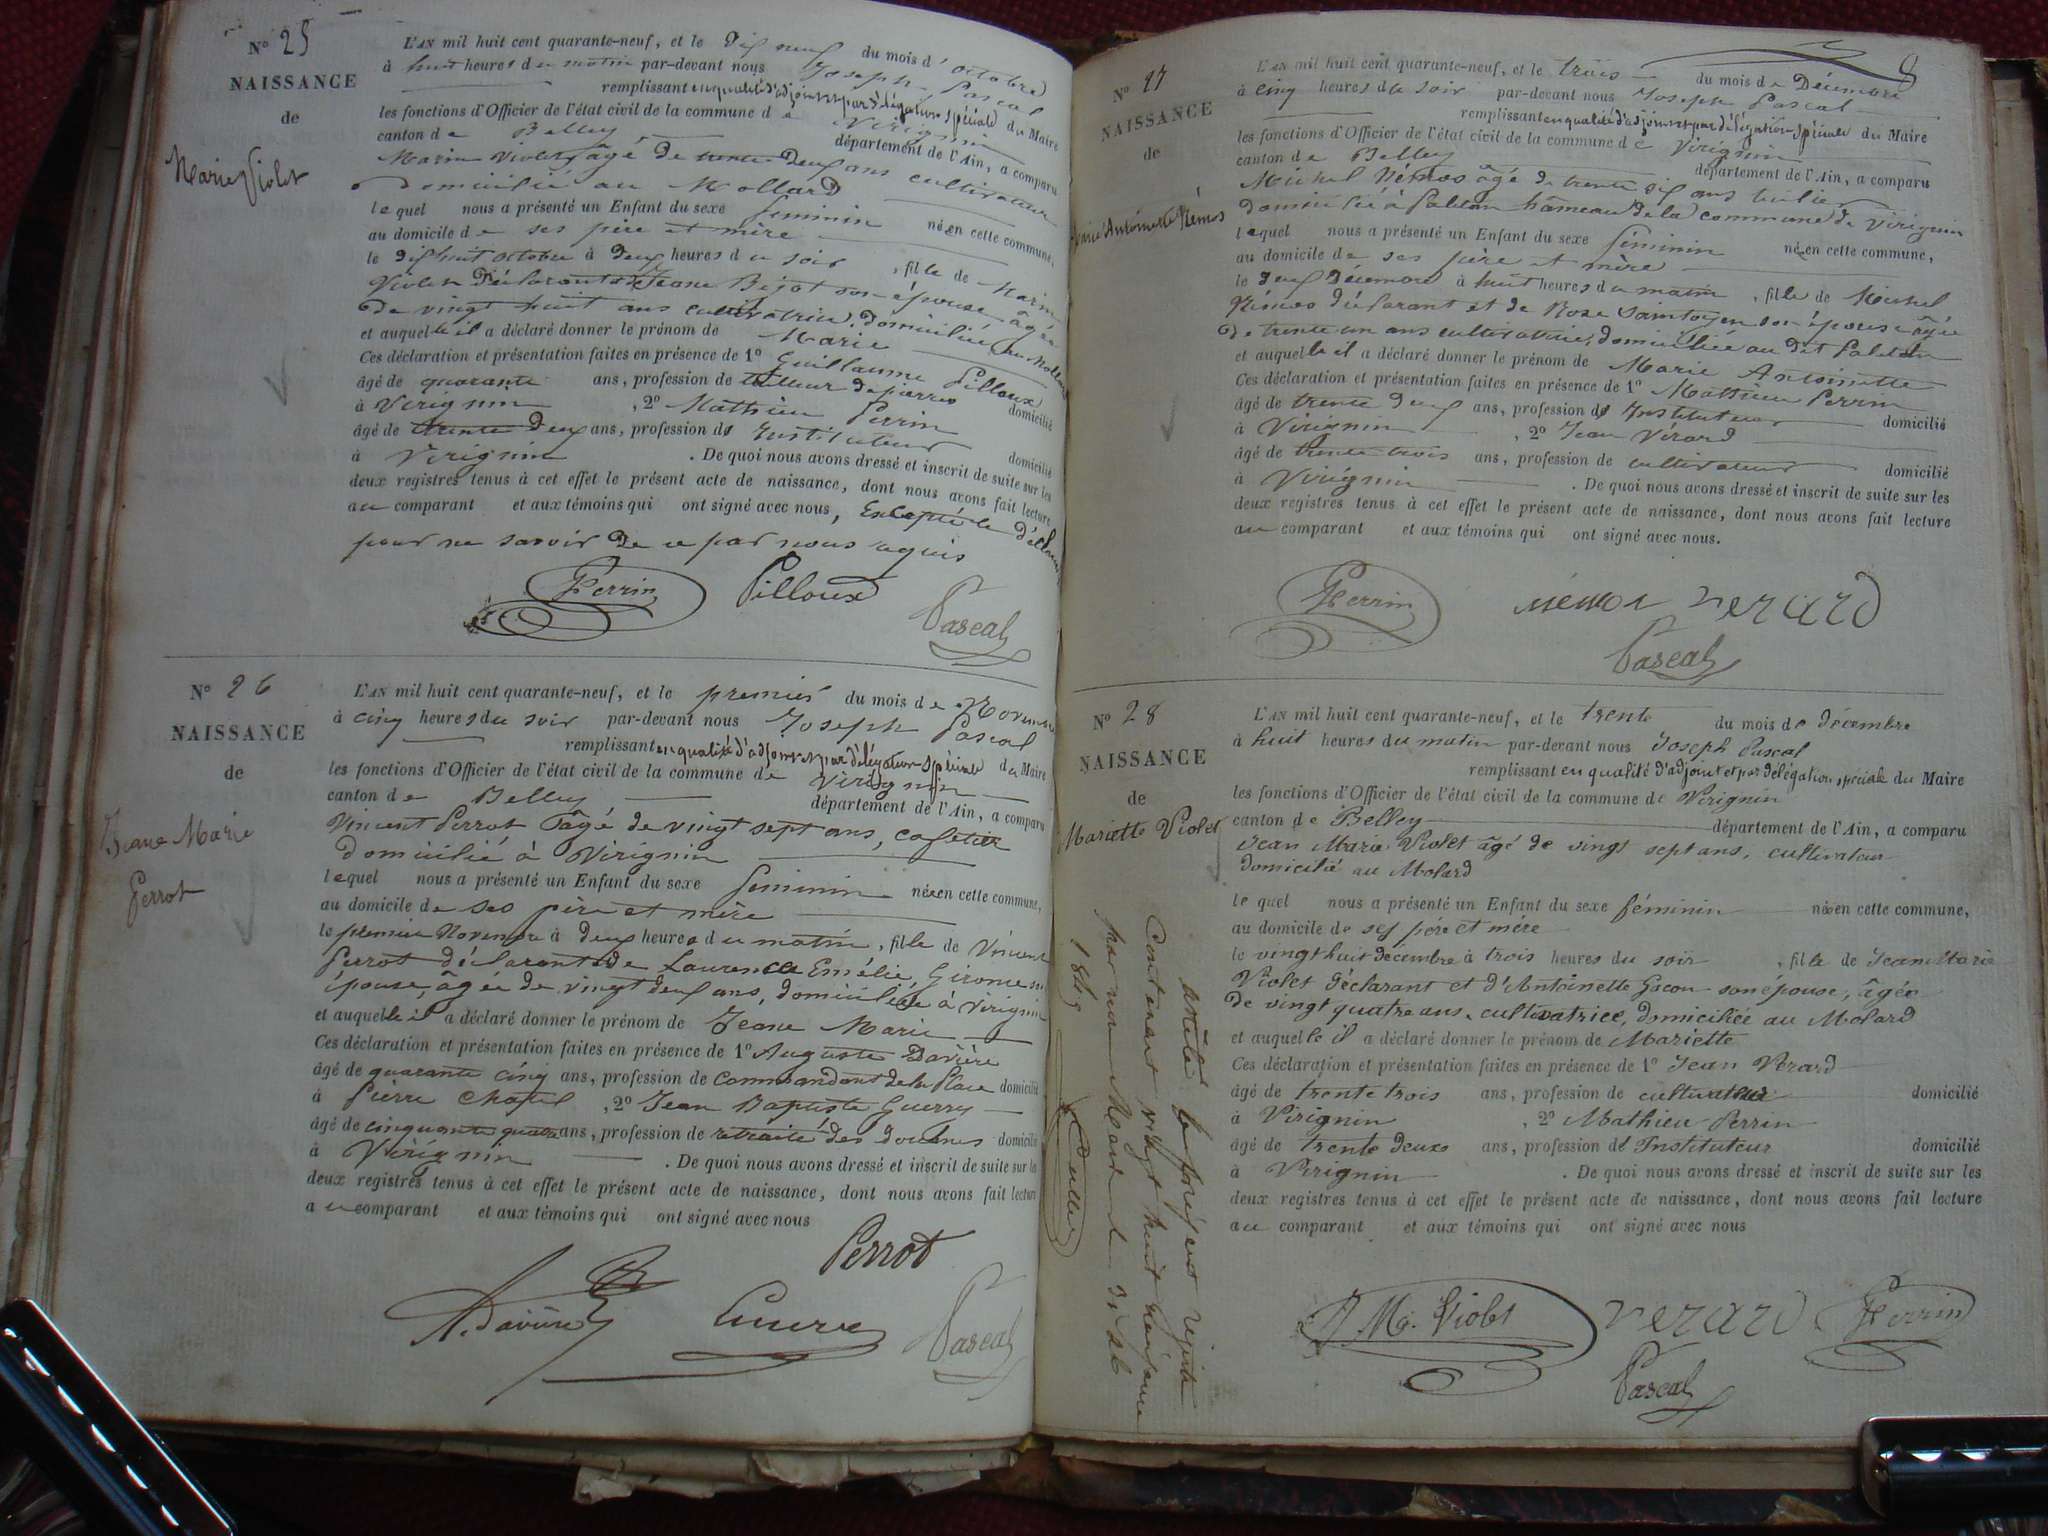 N° 25
NAISSANCE
de
Marie Violet
L'AN mil huit cent quarante-neuf, et le dix neuf du mois d'octobre
à huit heures du matin par-devant nous Joseph Pascal
remplissant en qualité d'adjoint et par délégation spéciale du Maire
les fonctions d'Officier de l'état civil de la commune de Virignin
canton de Belley département de l'Ain, a comparu
Marin Violet âgé de trente deux ans cultivateur
domicilié au Mollard
lequel nous a présenté un Enfant du sexe feminin né en cette commune,
au domicile de ses père et mère
le dix huit octobre à deux heures du soir, fille de Marin
Violet déclarant et de Jeane Bijot son épouse âgée
de vingt huit ans cultivatrice domiciliée au Mollard
et auquelle il a déclaré donner le prénom de Marie
Ces déclaration et présentation faites en présence de 1° Guillaume Pilloux
âgé de quarante ans, profession de tailleur de pierres domicilié
à Virignin, 2° Mathieu Perrin
âgé de trente deux ans, profession d' Instituteur domicilié
à Virignin. De quoi nous avons dressé et inscrit de suite sur les
deux registres tenus à cet effet le présent acte de naissance, dont nous avons fait lecture
au comparant et aux témoins qui ont signé avec nous, Excepté le déclarant
pour ne savoir de ce par nous requis
Perrin Pilloux Pascal
N° 26
NAISSANCE
de
Jeane Marie
Perrot
L'AN mil huit cent quarante-neuf, et le premier du mois de Novembre
à cinq heures du soir par-devant nous Joseph Pascal
remplissant en qualité d'adjoint et par délégation spéciale du Maire
les fonctions d'Officier de l'état civil de la commune de Virignin
canton de Belley département de l'Ain, a comparu
Vincent Perrot âgé de vingt sept ans, cafetier
domicilié à Virignin
lequel nous a présenté un Enfant du sexe feminin née en cette commune,
au domicile de ses père et mère
le premier Novembre à deux heures du matin, fille de Vincent
Perrot déclarant et de Laurence Emélie Girome son
épouse, âgée de vingt deux ans, domiciliée à Virignin
et auquelle il a déclaré donner le prénom de Jeane Marie
Ces déclaration et présentation faites en présence de 1° Auguste Davière
âgé de quarante cinq ans, profession de Commandant de la Place domicilié
à Pierre Chatel, 2° Jean Baptiste Guerry
âgé de cinquante quatre ans, profession de retraité des douanes domicilié
à Virignin. De quoi nous avons dressé et inscrit de suite sur les
deux registres tenus à cet effet le présent acte de naissance, dont nous avons fait lecture
au comparant et aux témoins qui ont signé avec nous
Perrot
A. Davière Pascal
8
N° 27
NAISSANCE
de
Marie Antoinette Némos
L'AN mil huit cent quarante-neuf, et le trois du mois de Décembre
à cinq heures du soir par-devant nous Joseph Pascal
remplissant en qualité d'adjoint et par délégation spéciale du Maire
les fonctions d'Officier de l'état civil de la commune de Virignin
canton de Belley département de l'Ain, a comparu
Michel Némos âgé de trente six ans tuilier
domicilié à hameau de la commune de Virignin
lequel nous a présenté un Enfant du sexe féminin née en cette commune,
au domicile de ses père et mère
le deux Décembre à huit heures du matin, fille de Michel
Némos déclarant et de Rose son épouse âgée
de trente un ans cultivatrice, domiciliée au dit
et auquelle il a déclaré donner le prénom de Marie Antoinette
Ces déclaration et présentation faites en présence de 1° Mathieu Perrin
âgé de trente deux ans, profession d' Instituteur domicilié
à Virignin, 2° Jean Vérard
âgé de trente trois ans, profession de cultivateur domicilié
à Virignin. De quoi nous avons dressé et inscrit de suite sur les
deux registres tenus à cet effet le présent acte de naissance, dont nous avons fait lecture
au comparant et aux témoins qui ont signé avec nous.
Perrin verard
Pascal
N° 28
NAISSANCE
de
Mariette Violet
L'AN mil huit cent quarante-neuf, et le trente du mois de décembre
à huit heures du matin par-devant nous Joseph Pascal
remplissant en qualité d'adjoint et par délégation spéciale du Maire
les fonctions d'Officier de l'état civil de la commune de Virignin
canton de Belley département de l'Ain, a comparu
Jean Marie Violet âgé de vingt sept ans, cultivateur
domicilié au Molard
lequel nous a présenté un Enfant du sexe féminin née en cette commune,
au domicile de ses père et mère
le vingt huit décembre à trois heures du soir, fille de Jean Marie
Violet déclarant et d'Antoinette Gacon son épouse, âgée
de vingt quatre ans, cultivatrice, domiciliée au Molard
et auquelle il a déclaré donner le prénom de Mariette
Ces déclaration et présentation faites en présence de 1° Jean Vérard
âgé de trente trois ans, profession de cultivateur domicilié
à Virignin, 2° Mathieu Perrin
âgé de trente deux ans, profession d' Instituteur domicilié
à Virignin. De quoi nous avons dressé et inscrit de suite sur les
deux registres tenus à cet effet le présent acte de naissance, dont nous avons fait lecture
au comparant et aux témoins qui ont signé avec nous
J M. Violet verard Perrin
Pascal
arrêté le présent registre
Contenant vingt huit naissance
par nous Maire le
1849